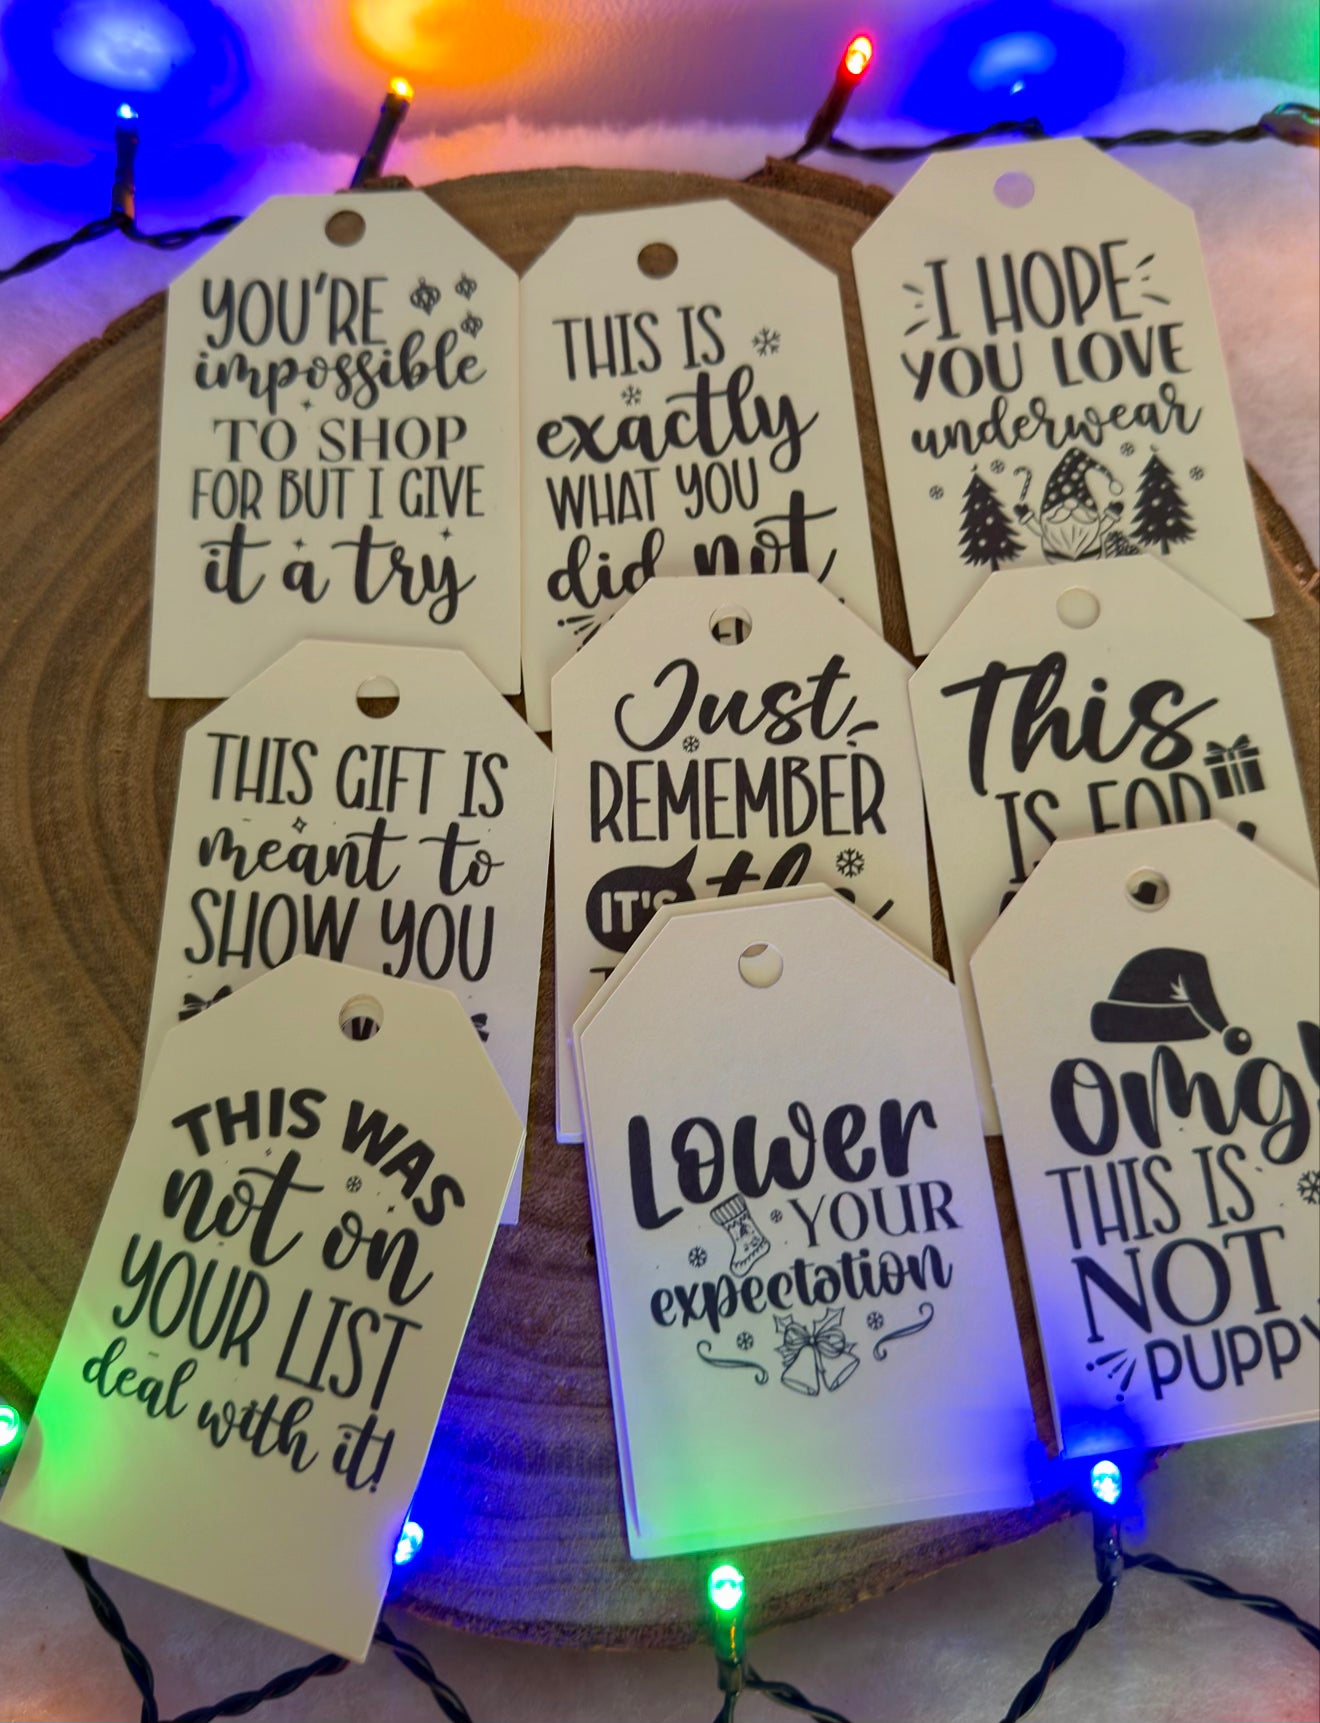 YOU'RE
impossible
TO SHOP
FOR BUT I GIVE
it a try
THIS IS
exactly
WHAT YOU
did not
I HOPE
YOU LOVE
underwear
THIS GIFT IS
meant to
SHOW YOU
Just
REMEMBER
IT'S the
This
IS FOR
THIS WAS
not on
YOUR LIST
deal with it!
Lower
YOUR
expectation
omg!
THIS IS
NOT
PUPPY